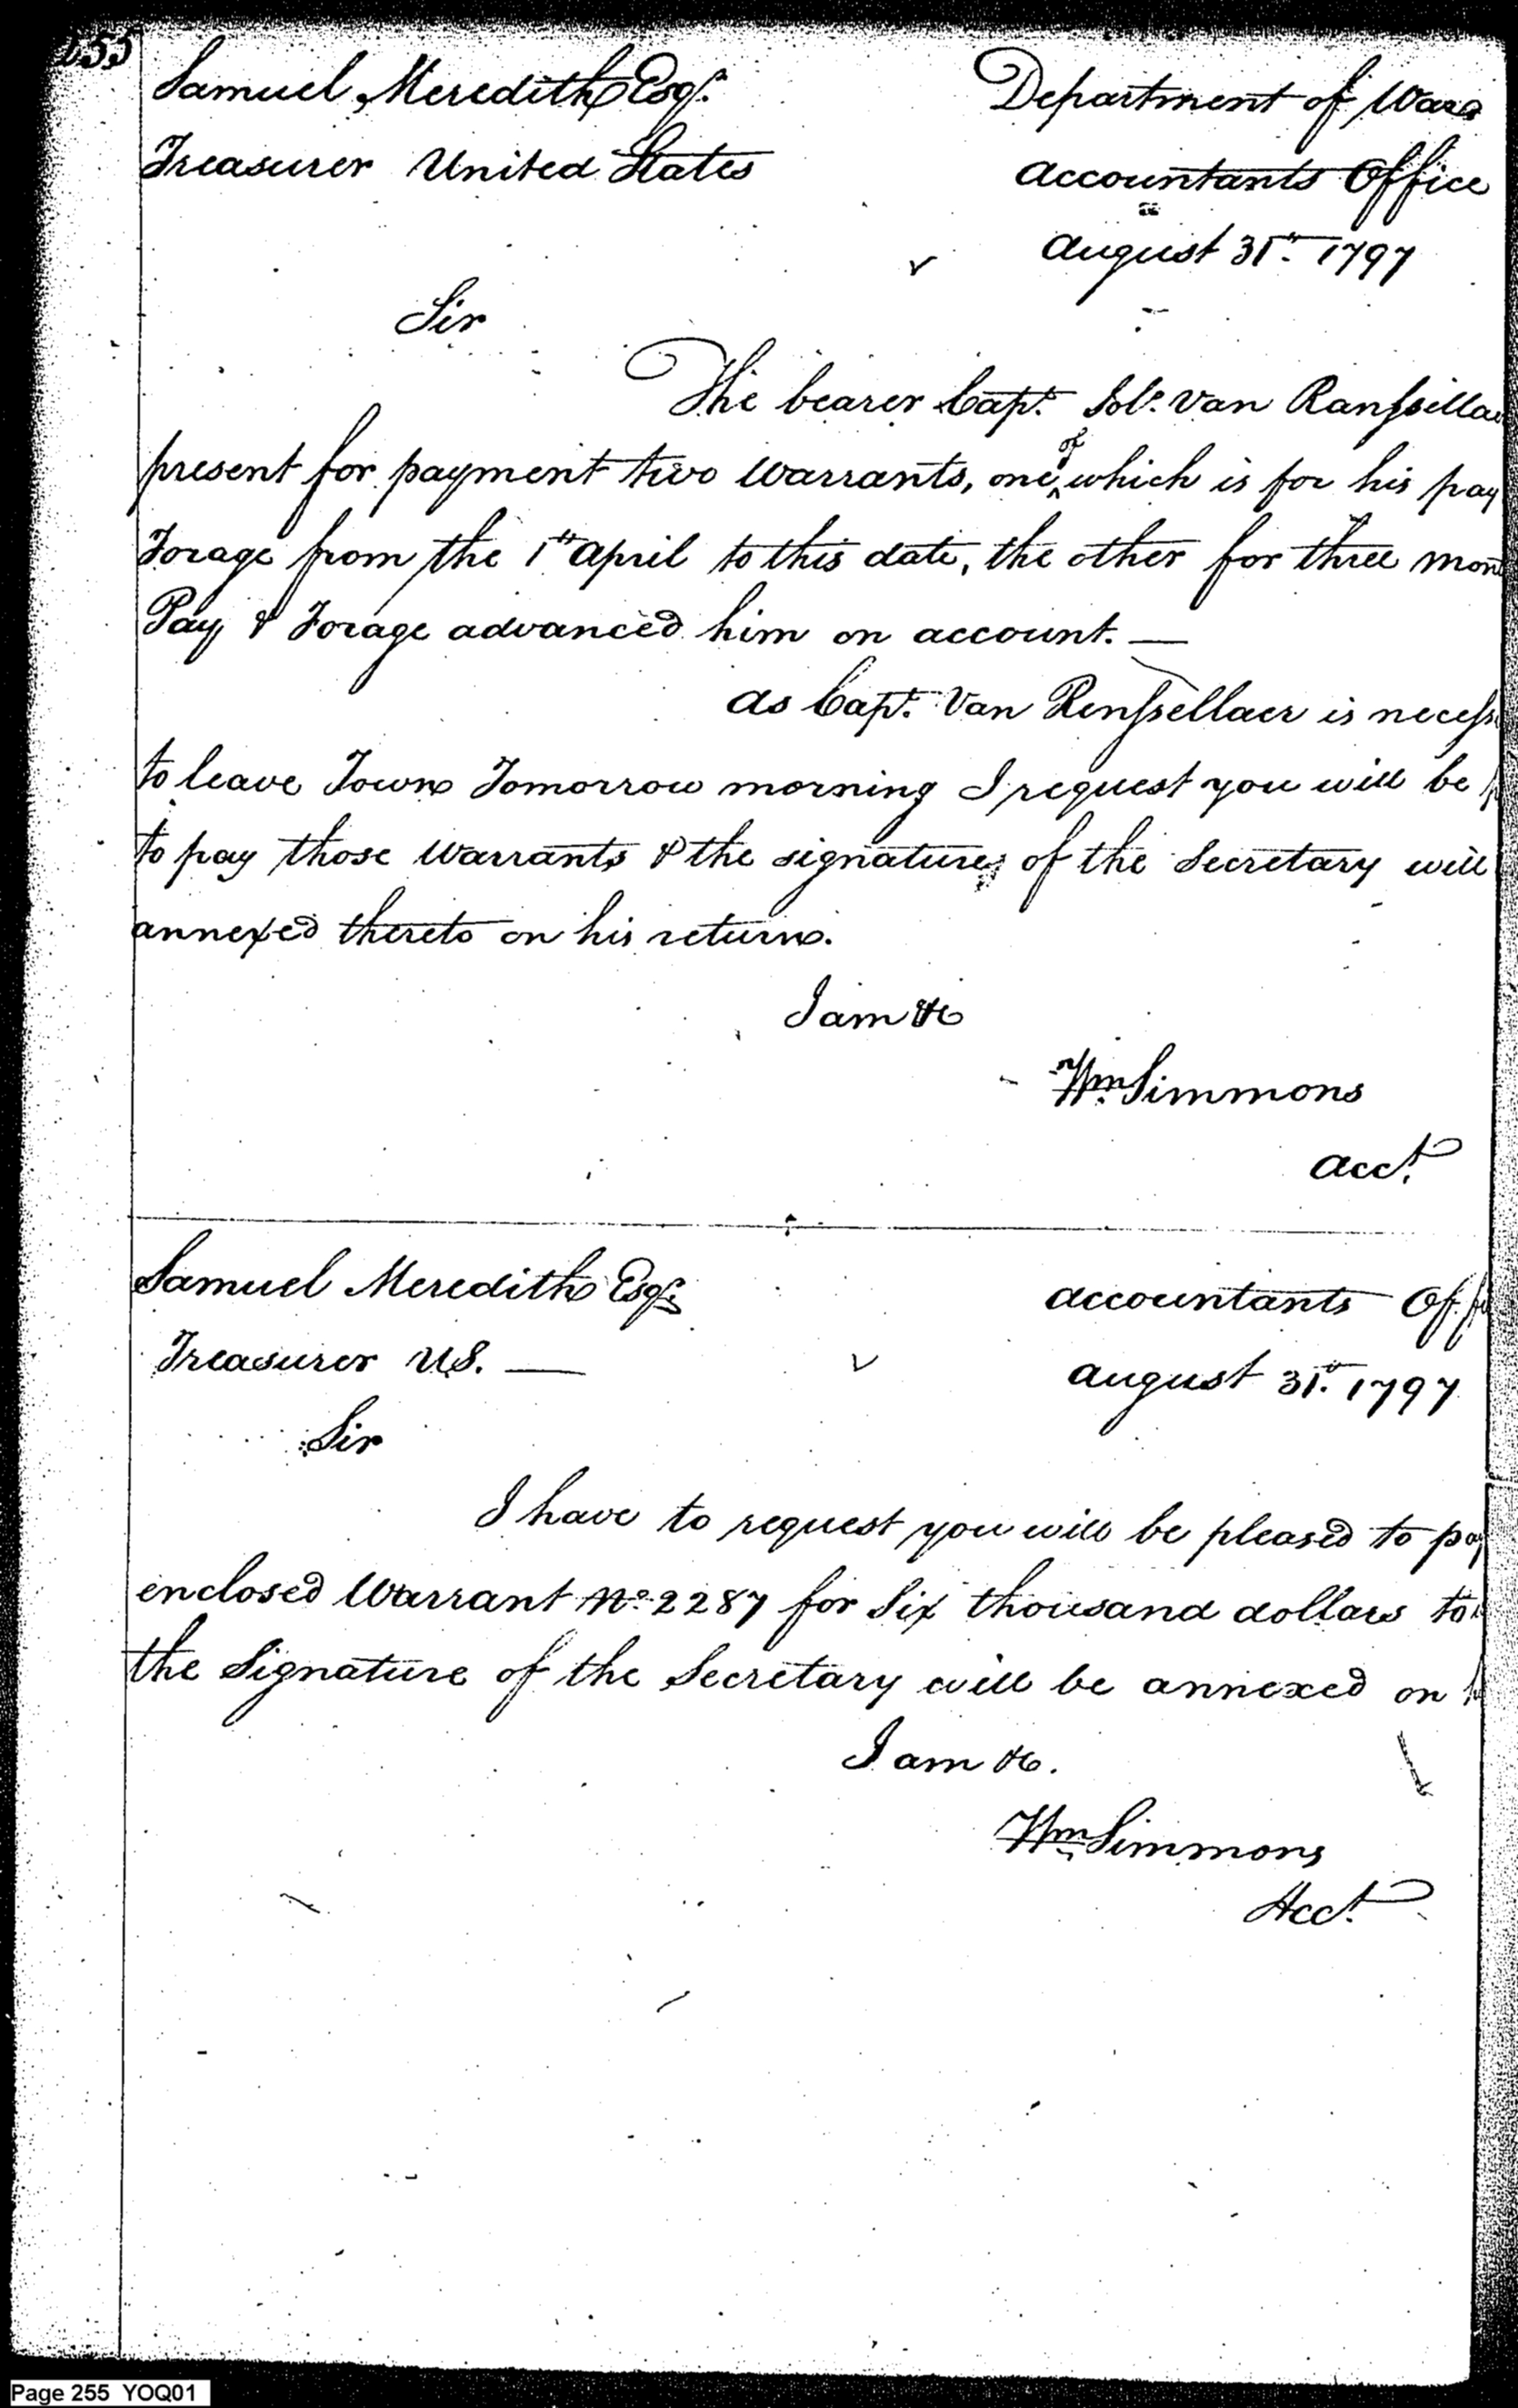 255
Samuel Meredith Esqr.
Treasurer United States
Department of War
Accountants Office
August 31st. 1797
Sir
The bearer Capt. Solo. Van Ranssellae
present for payment two Warrants, one of which is for his pay
Forage from the 1st April to this date, the other for three mon
Pay & Forage advanced him on account. —
As Capt. Van Renssellaer is necess
to leave Town Tomorrow morning I request you will be
to pay those Warrants & the signature of the Secretary will
annexed thereto on his return.
I am &c
Wm. Simmons
Acct.
Samuel Meredith Esqr.
Treasurer U.S. —
Accountants Offi
August 31st. 1797
Sir
I have to request you will be pleased to pay
enclosed Warrant No. 2287 for Six thousand dollars to
the Signature of the Secretary will be annexed on
I am &c.
Wm. Simmons
Acct.
Page 255 YOQ01